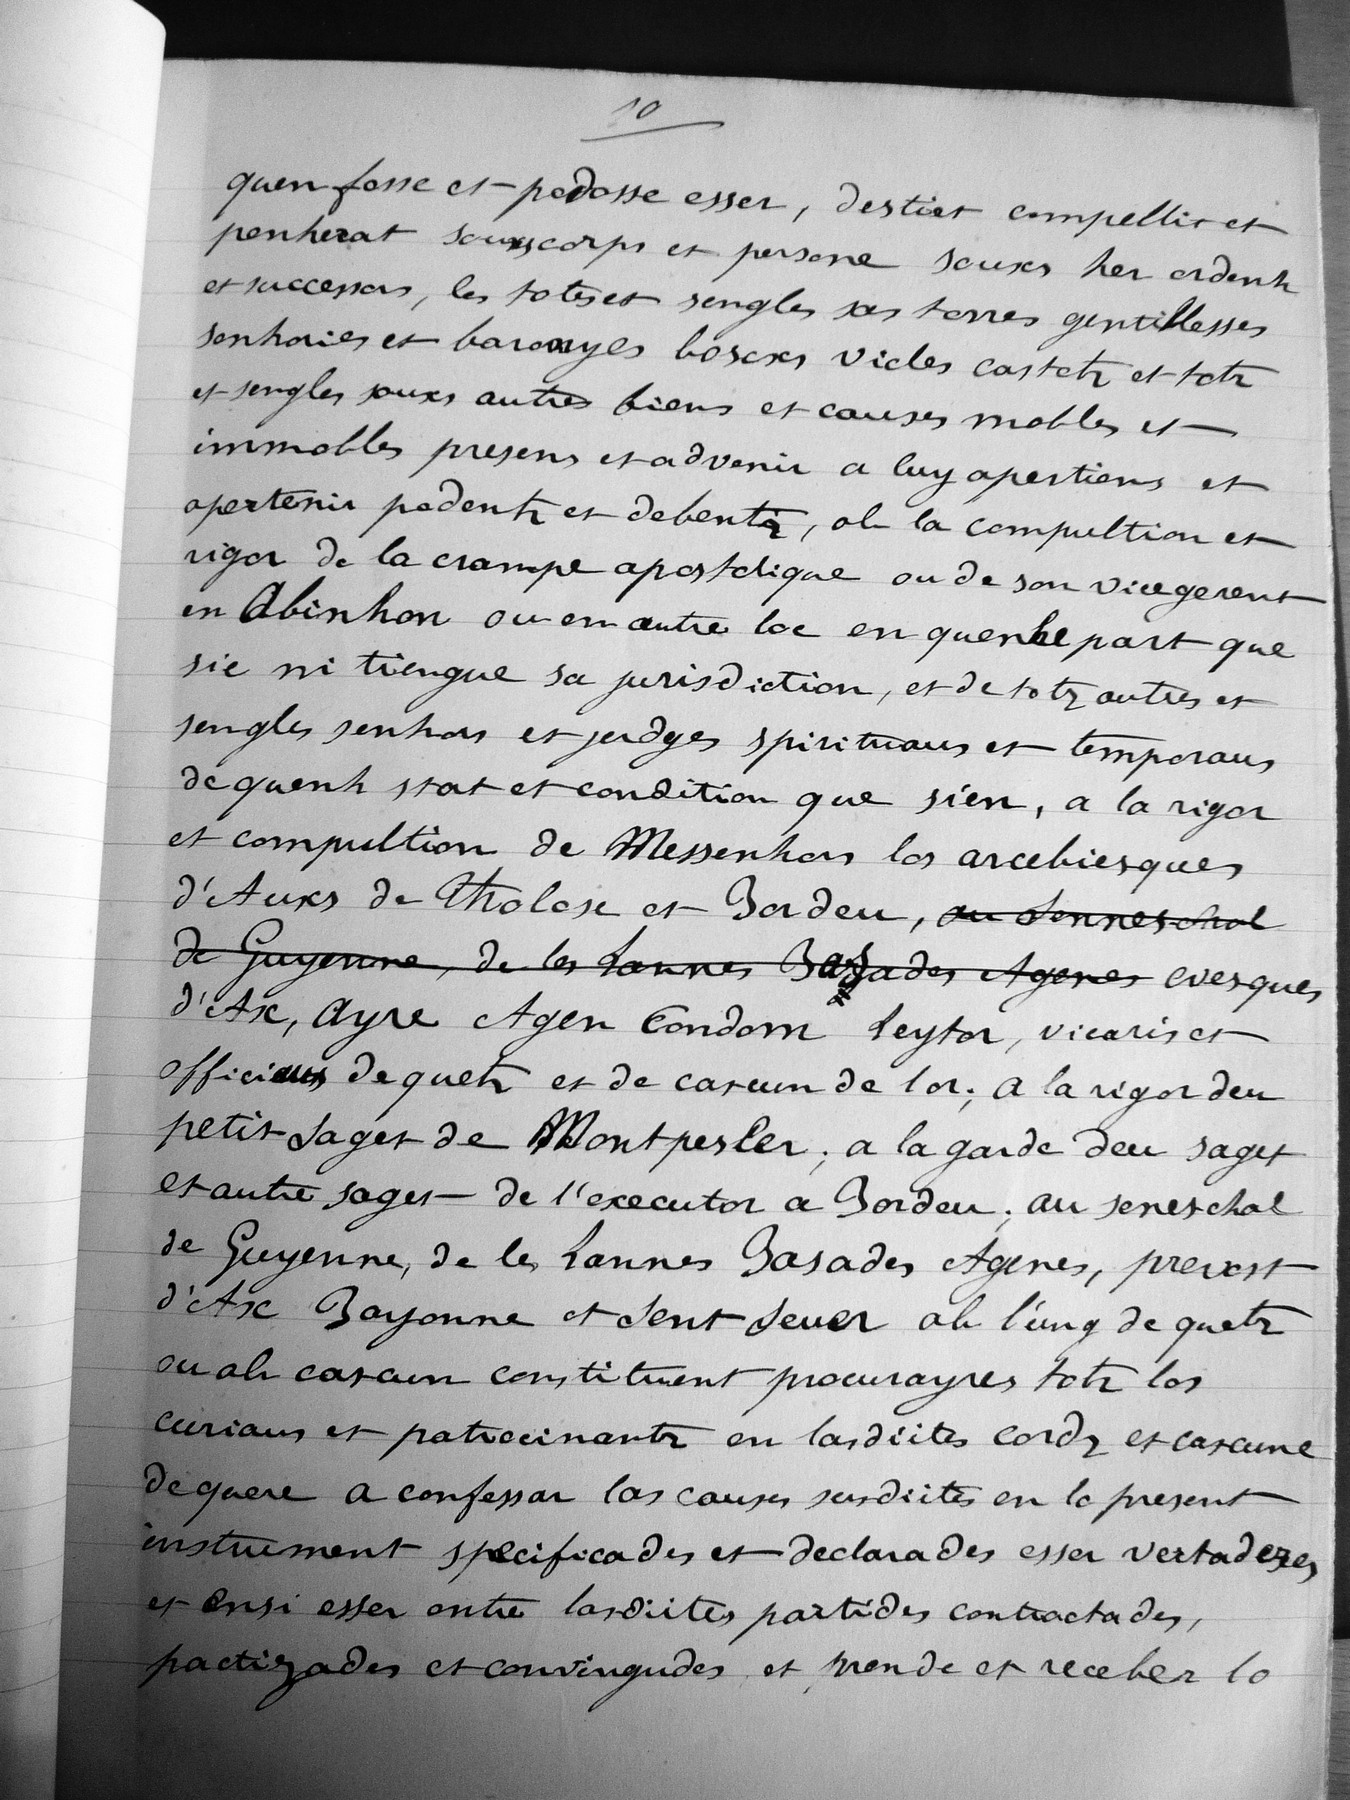 10
quen fosse et podosse esser, destiet compellit et
penherat souxs corps et persone souxs her ordenh
et successors, les totes et sengles sas terres gentillesses
senhories et baronyes boscxs vicles castetz et totz
et sengles souxs autres biens et causes mobles et
immobles presens et advenir a luy apertiens et
apertenir podentz et debentz, ab la compultion et
rigor de la crampe apostolique ou de son vicegerent
en Abinhon ou en autre loc en quenhe part que
sie ni tiengue sa jurisdiction, et de totz autres et
sengles senhors et judges spirituaus et temporaus
de quenh stat et condition que sien, a la rigor
et compultion de Messenhors los arcebiesques
d'Auxs de Tholose et Bordeu, ou Senneschal
de Guyenne, de les Lannes Basades Agenes evesques
d'Ax, Ayre Agen Condom Leytor, vicaris et
officiaus de quetz et de cascun de lor; a la rigor deu
petit saget de Montpesler; a la garde deu saget
et autre saget de l'executor a Bordeu; au seneschal
de Guyenne, de les Lannes Basades Agenes, prevost
d'Ax Bayonne et Sent Sever ab l'ung de quetz
ou ab cascun constituent procurayres totz los
curiaus et patrocinantz en lasdiites cordz et cascune
de quere a confessar las causes susdiites en lo present
instrument specificades et declarades esser vertaderes
et ensi esser entre lasdiites partides contractades,
pactizades et convingudes et prende et receber lo